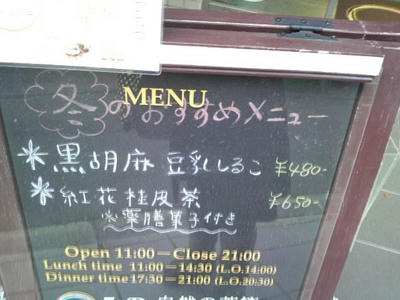 MENU
冬のおすすめメニュー
*黒胡麻 豆乳しるこ ¥480-
*紅花桂皮茶 ¥650-
※薬膳菓子付き
Open 11:00ーClose 21:00
Lunch time 11:00ー14:30 (L.O.14:00)
Dinner time 17:30ー21:00 (L.O.20:30)